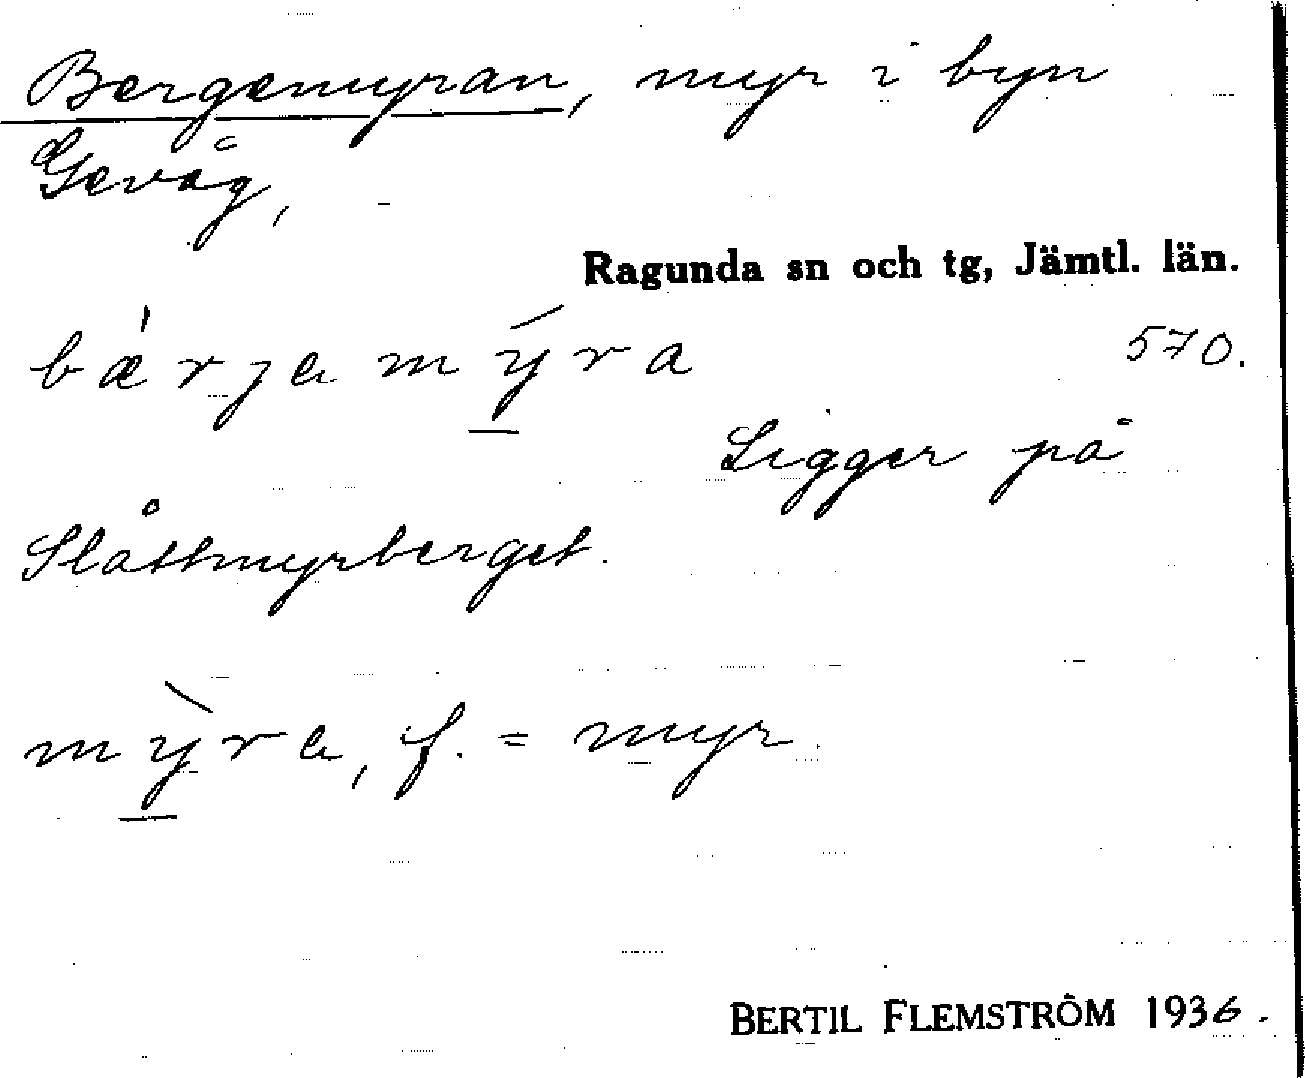 Bergemyran, myr i byn
Gevåg,
Ragunda sn och tg, Jämtl. län.
bæ̀rjem ýra
570.
Ligger på
Slåttmyrberget.
mỳre, f. = myr.
BERTIL FLEMSTRÖM 1936.